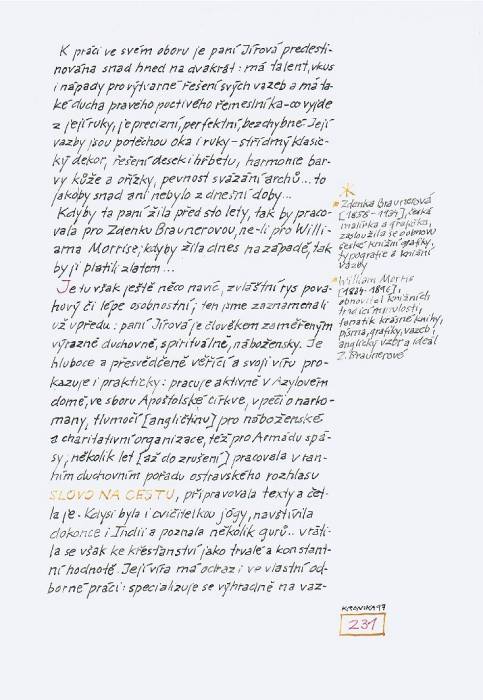 K práci ve svém oboru je paní Jírová predesti-
nována snad hned na dvakrát: má talent, vkus
i nápady pro výtvarné řešení svých vazeb a má ta-
ké ducha pravého poctivého řemeslníka-co vyjde
z její ruky, je precizní, perfektní, bezchybné. Její
vazby jsou potěchou oka i ruky - střídmý klasic-
ký dekor, řešení desek i hřbetu, harmonie bar-
vy kůže a ořízky, pevnost svázání archů... to
jakoby snad ani nebylo z dnešní doby...
Kdyby ta paní žila před sto lety, tak by praco-
vala pro Zdenku Braunerovou, ne-li pro Willi-
ama Morrise; kdyby žila dnes na západě, tak
by jí platili zlatem...
Je tu však ještě něco navíc, zvláštní rys pova-
hový či lépe osobnostní; ten jsme zaznamenali
už vpředu: paní Jírová je člověkem zaměřeným
výrazně duchovně, spirituálně, nábožensky. Je
hluboce a přesvědčeně věřící a svoji víru pro-
kazuje i prakticky: pracuje aktivně v Azylovém
domě, ve sboru Apoštolské církve, v péči o narko-
many, tlumočí [angličtinu] pro náboženské
a charitativní organizace, též pro Armádu spá-
sy, několik let [až do zrušení] pracovala v ran-
ním duchovním pořadu ostravského rozhlasu
SLOVO NA CESTU, připravovala texty a čet-
la je. Kdysi byla i cvičitelkou jógy, navštívila
dokonce i Indii a poznala několik gurů.. vráti-
la se však ke křesťanství jako trvalé a konstant-
ní hodnotě. Její víra má odraz i ve vlastní od-
borné práci: specializuje se výhradně na vaz-
*
Zdenka Braunerová
[1858 - 1934], česká
malířka a grafička,
zasloužila se o obnovu
české knižní grafiky,
typografie a knižní
vazby
William Morris
[1834-1896],
obnovitel knižních
tradic minulosti,
fanatik krásné knihy,
písma, grafiky, vazeb;
anglický vzor a ideál
Z. Braunerové
KRONIKA 97
231